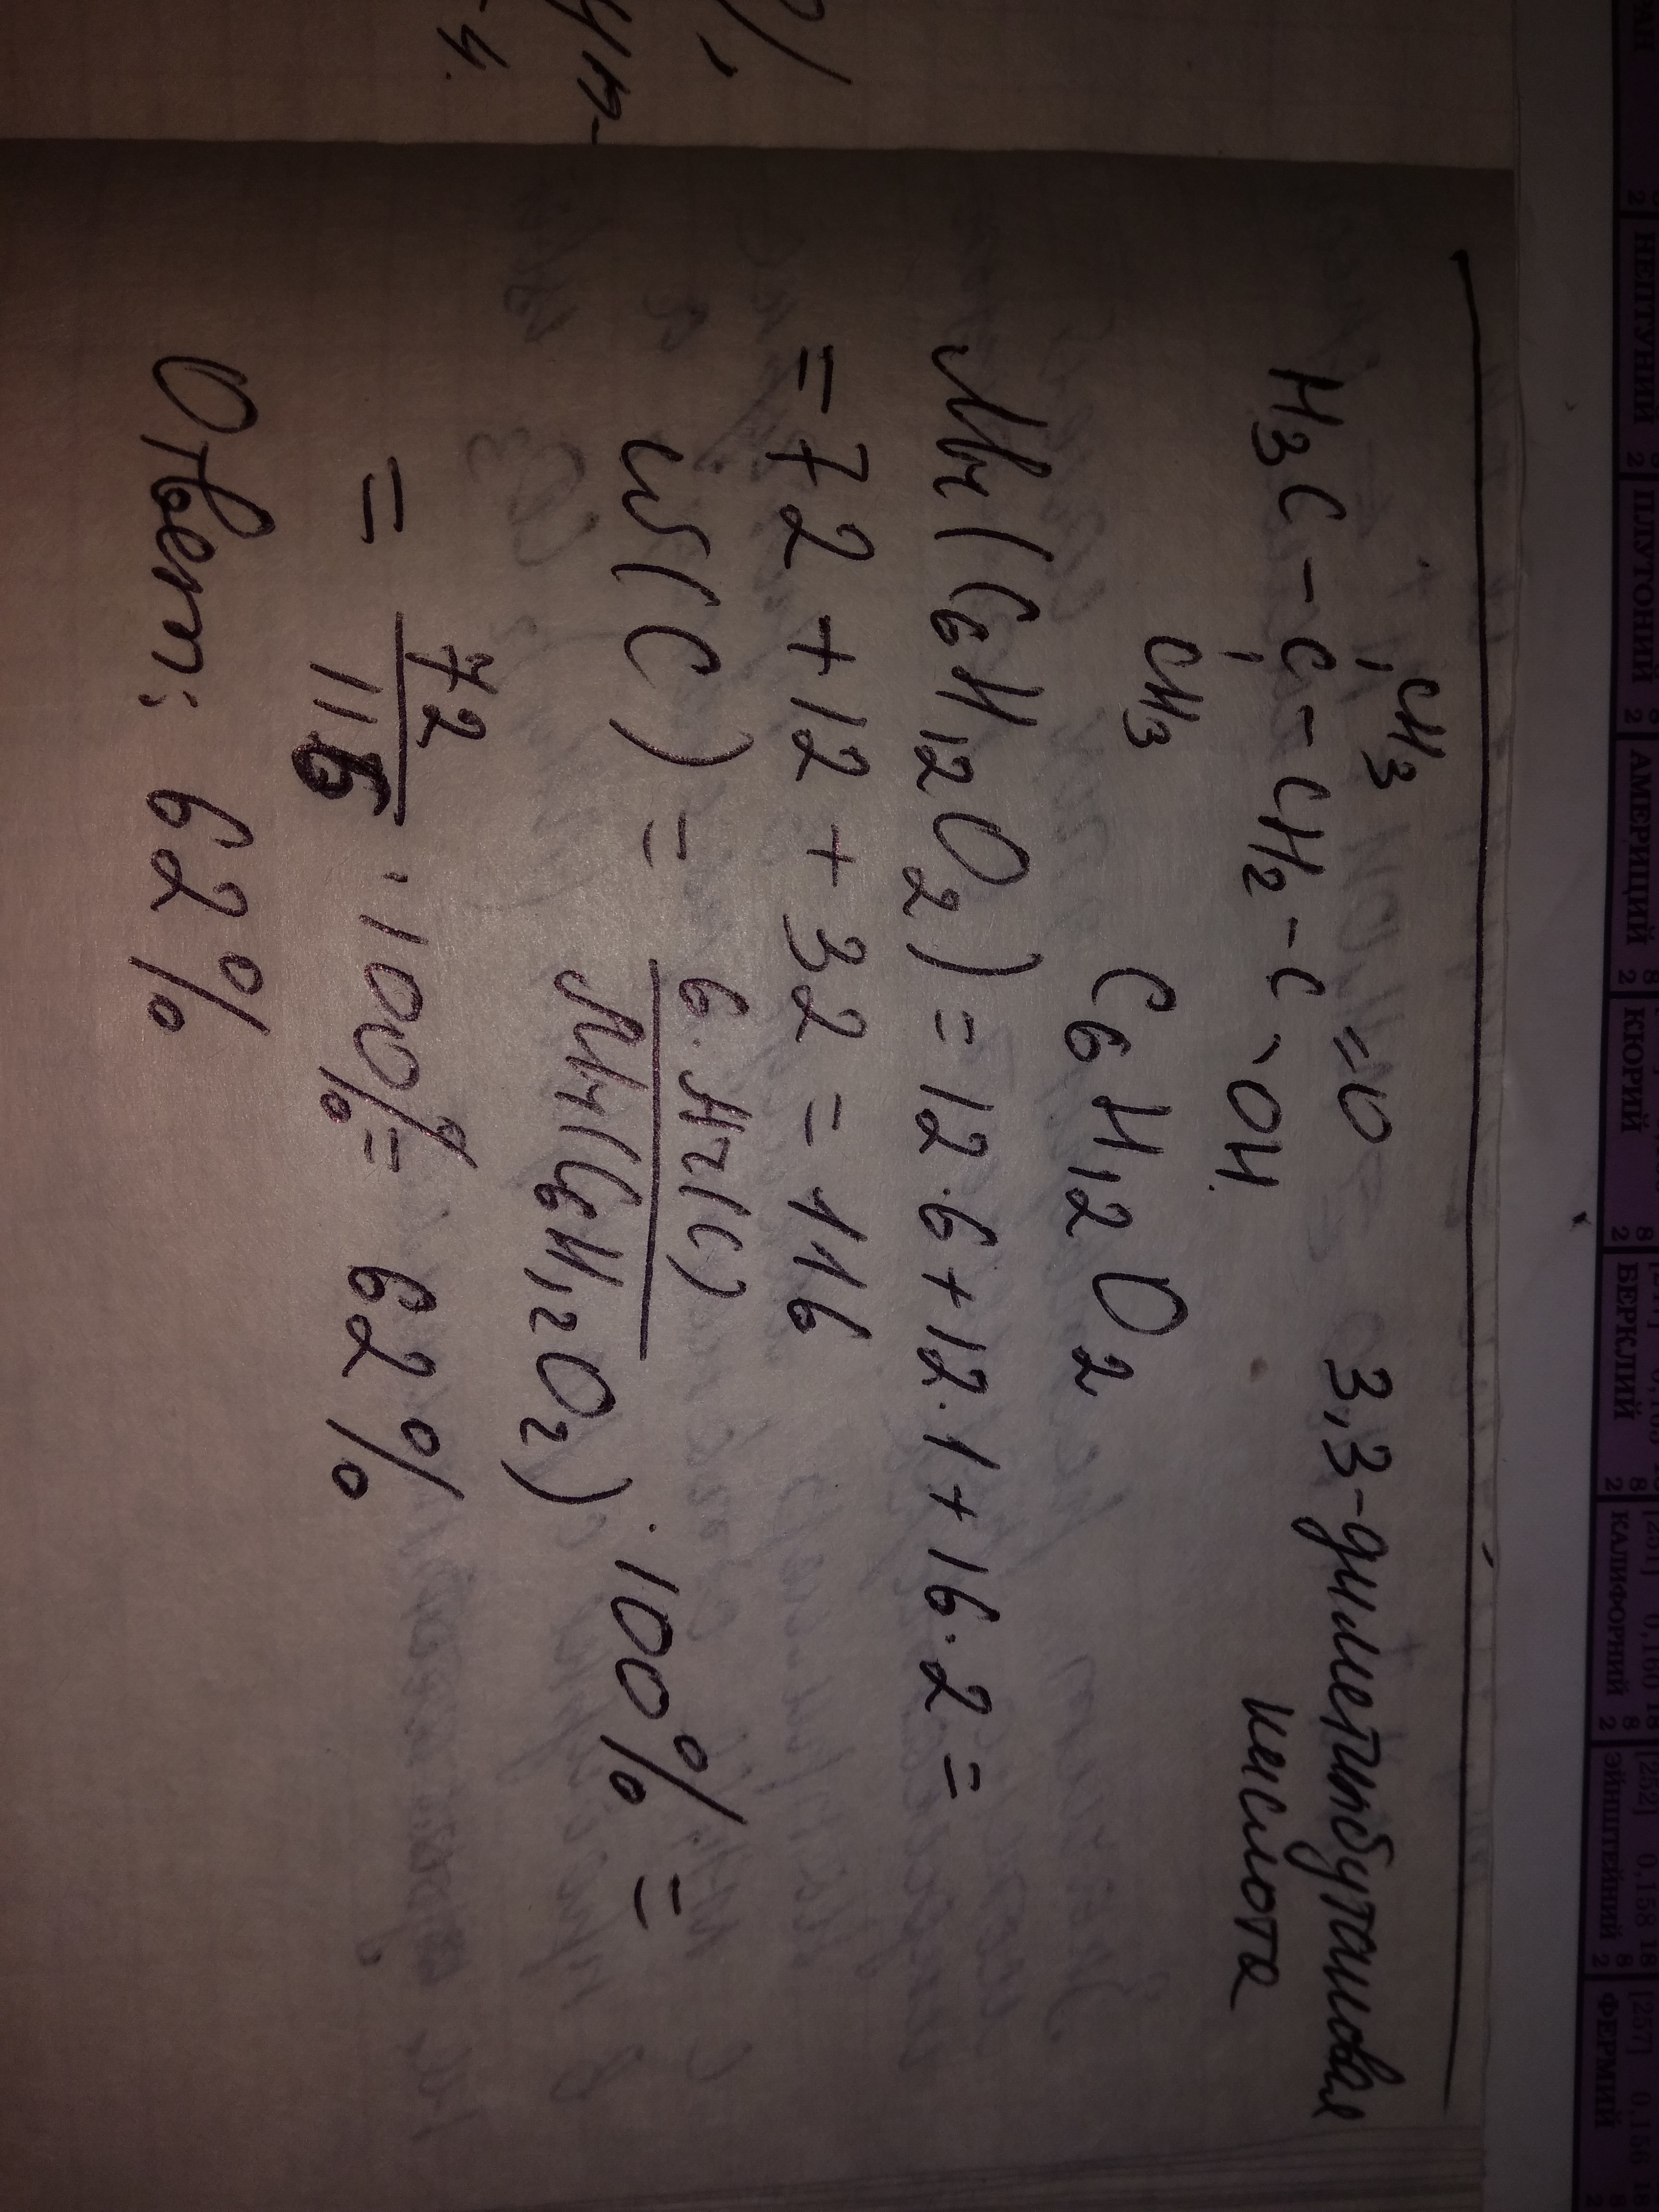 CH3
H3C - C - CH2 - C =O \ OH 3,3-диметилбутановая
CH3 кислота
C6H12O2
Mr(C6H12O2) = 12·6+12·1+16·2 =
= 72 + 12 + 32 = 116
W(C) = 6·Ar(C) / Mr(C6H12O2) · 100% =
= 72 / 116 · 100% = 62%
Ответ: 62%
НЕПТУНИЙ
ПЛУТОНИЙ
АМЕРИЦИЙ
КЮРИЙ
БЕРКЛИЙ
КАЛИФОРНИЙ
ЭЙНШТЕЙНИЙ
ФЕРМИЙ